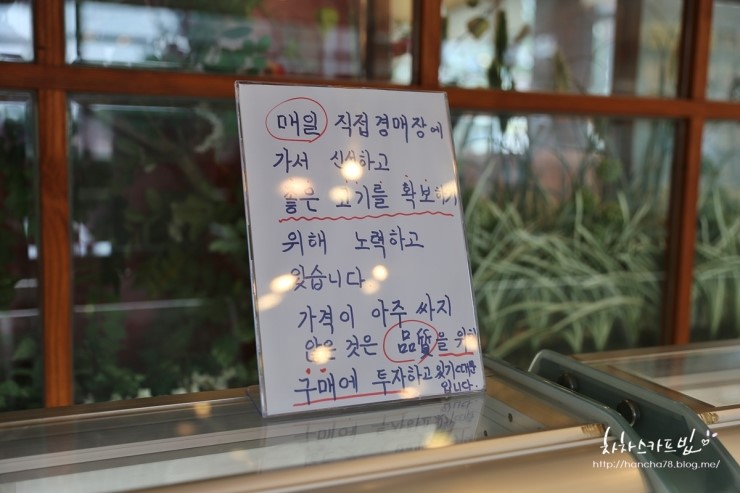 매일 직접 경매장에
가서 신선하고
좋은 고기를 확보하기
위해 노력하고
있습니다.
가격이 아주 싸지
않은 것은 品質을 위한
구매에 투자하고 있기 때문
입니다.
차차스카프빔
http://hancha78.blog.me/